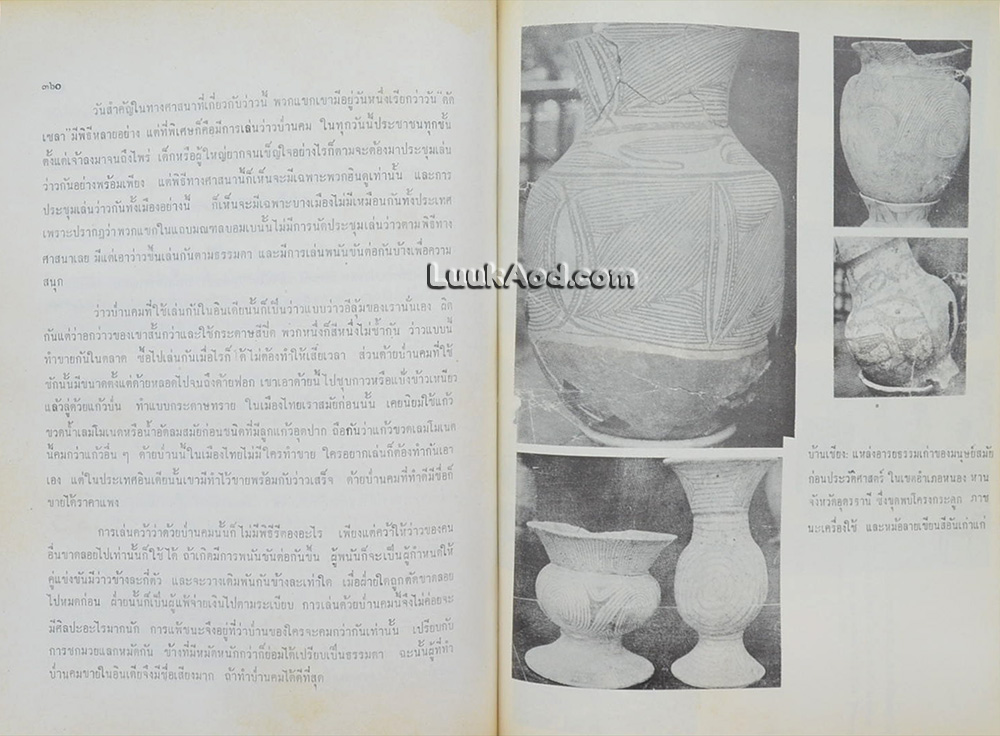 ๓๖๐
วันสำคัญในทางศาสนาที่เกี่ยวกับว่าวนี้ พวกแขกเขามีอยู่วันหนึ่งเรียกว่าวัน"ตัด
เชลา"มีพิธีหลายอย่าง แต่ที่พิเศษก็คือมีการเล่นว่าวป่านคม ในทุกวันนี้ประชาชนทุกชั้น
ตั้งแต่เจ้าลงมาจนถึงไพร่ เด็กหรือผู้ใหญ่ยากจนเข็ญใจอย่างไรก็ตามจะต้องมาประชุมเล่น
ว่าวกันอย่างพร้อมเพียง แต่พิธีทางศาสนานี้ก็เห็นจะมีเฉพาะพวกฮินดูเท่านั้น และการ
ประชุมเล่นว่าวกันทั้งเมืองอย่างนี้ ก็เห็นจะมีเฉพาะบางเมืองไม่มีเหมือนกันทั้งประเทศ
เพราะปรากฏว่าพวกแขกในแถบมณฑลบอมเบนั้นไม่มีการนัดประชุมเล่นว่าวตามพิธีทาง
ศาสนาเลย มีแต่เอาว่าวขึ้นเล่นกันตามธรรมดา และมีการเล่นพนันขันต่อกันบ้างเพื่อความ
สนุก
ว่าวป่านคมที่ใช้เล่นกันในอินเดียนั้นก็เป็นว่าวแบบว่าวอีลุ้มของเรานั่นเอง ผิด
กันแต่ว่าอกว่าวของเขาสั้นกว่าและใช้กระดาษสีปิด พวกหนึ่งก็สีหนึ่งไม่ซ้ำกัน ว่าวแบบนี้
ทำขายกันในตลาด ซื้อไปเล่นกันเมื่อไรก็ได้ ไม่ต้องทำให้เสียเวลา ส่วนด้ายป่านคมที่ใช้
ชักนั้นมีขนาดตั้งแต่ด้ายหลอดไปจนถึงด้ายฟอก เขาเอาด้ายนี้ไปชุบกาวหรือแป้งข้าวเหนียว
แล้วลู่ด้วยแก้วป่น ทำแบบกระดาษทราย ในเมืองไทยเราสมัยก่อนนั้น เคยนิยมใช้แก้ว
ขวดน้ำเลมโมเนดหรือน้ำอัดลมสมัยก่อนชนิดที่มีลูกแก้วอุดปาก ถือกันว่าแก้วขวดเลมโมเนด
นี้คมกว่าแก้วอื่น ๆ ด้ายป่านนี้ในเมืองไทยไม่มีใครทำขาย ใครอยากเล่นก็ต้องทำกันเอา
เอง แต่ในประเทศอินเดียนั้นเขามีทำไว้ขายพร้อมกับว่าวเสร็จ ด้ายป่านคมที่ทำดีมีชื่อก็
ขายได้ราคาแพง
การเล่นคว้าว่าวด้วยป่านคมนั้นก็ไม่มีพิธีรีตองอะไร เพียงแต่คว้าให้ว่าวของคน
อื่นขาดลอยไปเท่านั้นก็ใช้ได้ ถ้าเกิดมีการพนันขันต่อกันขึ้น ผู้พนันก็จะเป็นผู้กำหนดให้
คู่แข่งขันมีว่าวข้างละกี่ตัว และจะวางเดิมพันกันข้างละเท่าใด เมื่อฝ่ายใดถูกตัดขาดลอย
ไปหมดก่อน ฝ่ายนั้นก็เป็นผู้แพ้จ่ายเงินไปตามระเบียบ การเล่นด้วยป่านคมนี้จึงไม่ค่อยจะ
มีศิลปะอะไรมากนัก การแพ้ชนะจึงอยู่ที่ว่าป่านของใครจะคมกว่ากันเท่านั้น เปรียบกับ
การชกมวยแลกหมัดกัน ข้างที่มีหมัดหนักกว่าก็ย่อมได้เปรียบเป็นธรรมดา ฉะนั้นผู้ที่ทำ
ป่านคมขายในอินเดียจึงมีชื่อเสียงมาก ถ้าทำป่านคมได้ดีที่สุด
LuukAod.com
บ้านเชียง: แหล่งอารยธรรมเก่าของมนุษย์สมัย
ก่อนประวัติศาสตร์ ในเขตอำเภอหนองหาน
จังหวัดอุดรธานี ซึ่งขุดพบโครงกระดูก ภาช
นะเครื่องใช้ และหม้อลายเขียนสีอันเก่าแก่